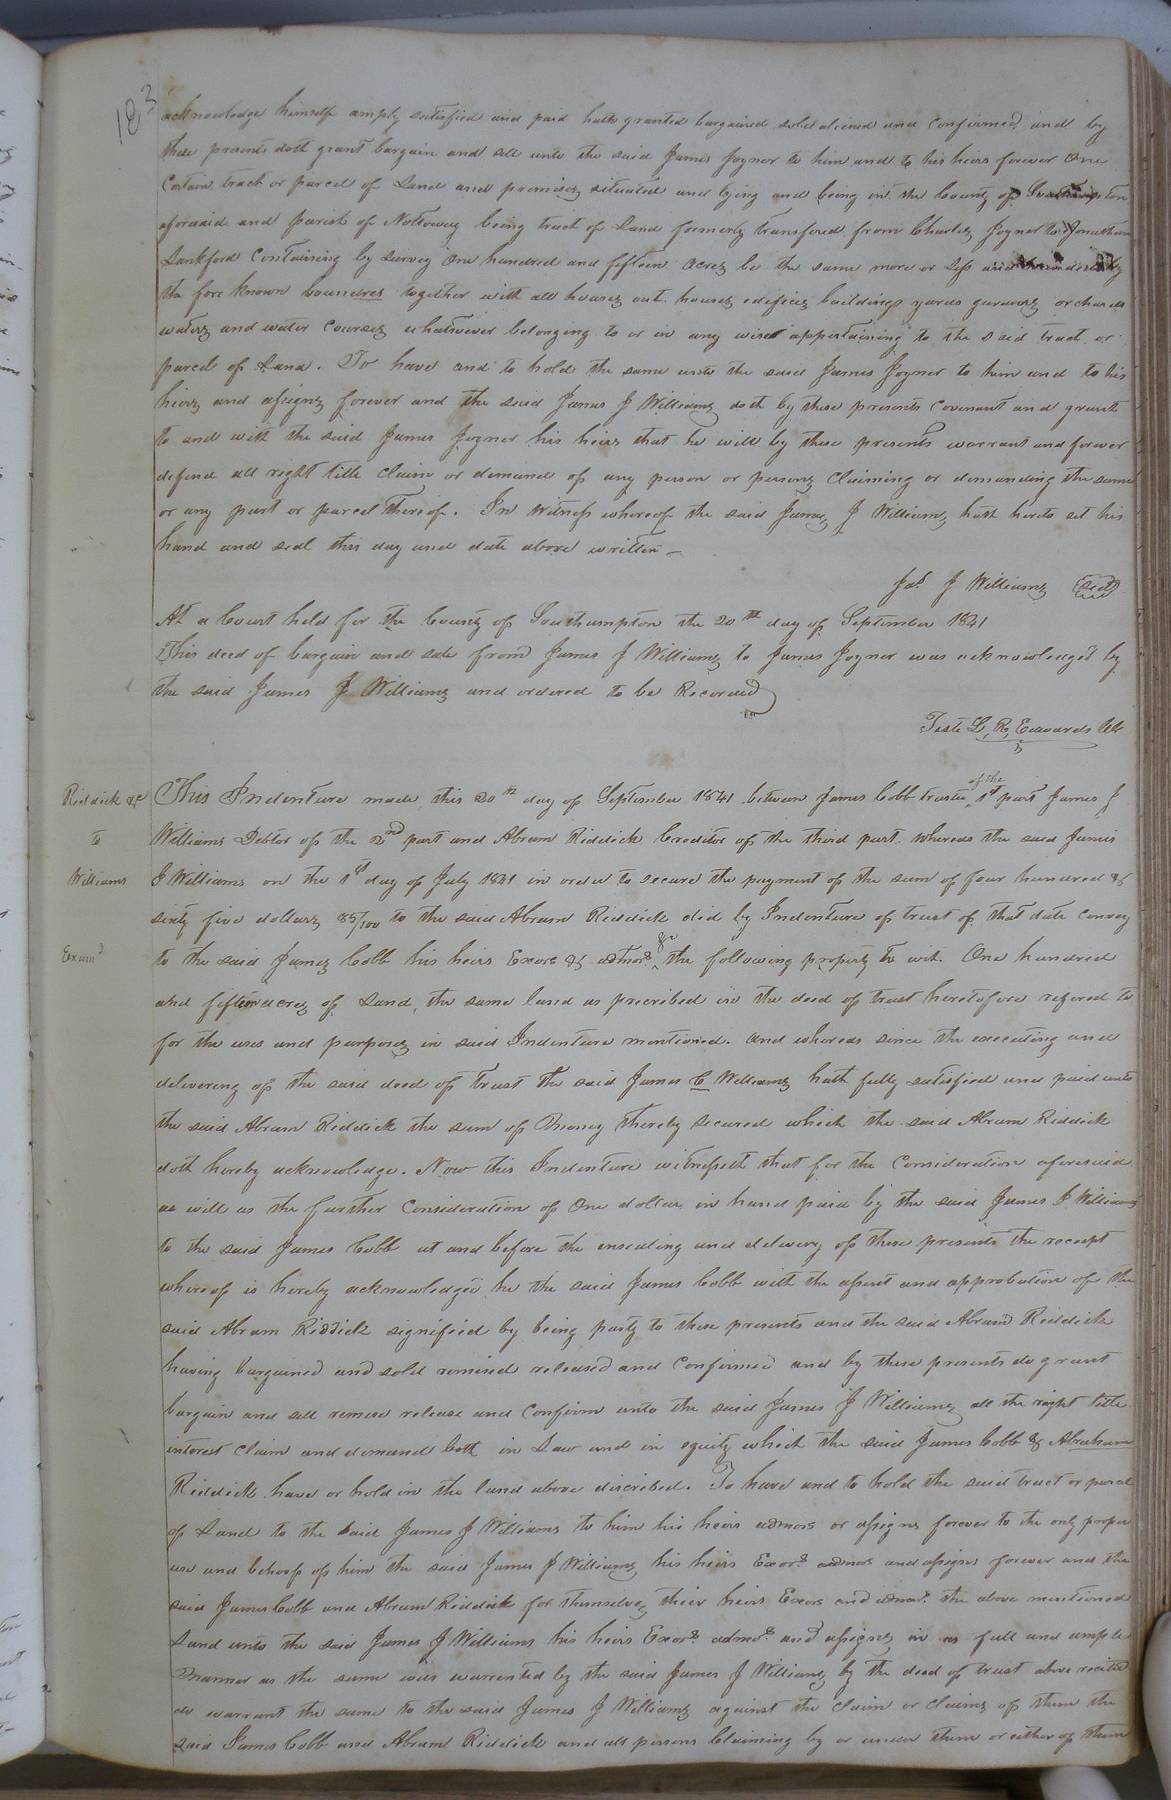 183
acknowledge himself amply satisfied and paid hath granted bargained sold aliened and confirmed and by
these presents doth grant bargain and sell unto the said James Joyner to him and to his heirs forever One
Certain tract or parcel of Land and premises situated and lying and being in the County of Southampton
aforesaid and parish of Nottoway being tract of Land formerly transfered from Charles Joyner to Jonathan
Lankford Containing by survey One hundred and fifteen acres be the same more or less and
the fore known boundres together with all houses out houses edifices buildings yards gardens orchards
waters and water courses whatsoever belonging to or in any wise appertaining to the said tract or
parcel of Land. To have and to hold the same unto the said James Joyner to him and to his
heirs and assigns forever and the said James J Williams doth by these presents covenant and grant
to and with the said James Joyner his heirs that he will by these presents warrant and forever
defend all right title claim or demand of any person or persons Claiming or demanding the same
or any part or parcel thereof. In Witness whereof the said James J Williams hath hereto set his
hand and seal this day and date above written –
Jas J Williams Seal
At a Court held for the County of Southampton the 20th day of September 1841
This deed of bargain and sale from James J Williams to James Joyner was acknowledged by
the said James J Williams and ordered to be Recorded
Teste L, R, Edwards Clk
Riddick &c
to
Williams
Examd
This Indenture made this 20th day of September 1841 between James Cobb trustee of the 1st part James J
Williams Debtor of the 2nd part and Abram Riddick Creditor of the third part. Whereas the said James
J Williams on the 1st day of July 1841 in order to secure the payment of the sum of four hundred &
sixty five dollars 85/100 to the said Abram Riddick did by Indenture of trust of that date convey
to the said James Cobb his heirs Exors & admors &c the following property to wit. One hundred
and fifteen acres of Land, the same land as prescribed in the deed of trust heretofore refered to
for the uses and purposes in said Indenture mentioned. and whereas since the executing and
delivering of the said deed of trust the said James C Williams hath fully satisfied and paid unto
the said Abram Riddick the sum of Money thereby secured which the said Abram Riddick
doth hereby acknowledge. Now this Indenture witnesseth that for the Consideration aforesaid
as well as the further Consideration of One dollar in hand paid by the said James J Williams
to the said James Cobb at and before the ensealing and delivery of these presents the receipt
whereof is hereby acknowledged he the said James Cobb with the assent and approbation of the
said Abram Riddick signified by being party to these presents and the said Abram Riddick
having bargained and sold remised released and Confirmed and by these presents do grant
bargain and sell remise release and Confirm unto the said James J Williams all the right title
interest claim and demand both in Law and in equity which the said James Cobb & Abraham
Riddick have or hold in the land above discribed. To have and to hold the said tract or parcel
of Land to the said James J Williams to him his heirs admors or assigns forever to the only proper
use and behoof of him the said James J Williams his heirs Exors admors and assigns forever and the
said James Cobb and Abram Riddick for themselves their heirs Exors and admors the above mentioned
Land unto the said James J Williams his heirs Exors admors and assigns in as full and ample
Manner as the same was warrented by the said James J Williams by the deed of trust above recited
do warrant the same to the said James J Williams against the Claim or Claims of them the
said James Cobb and Abram Riddick and all persons Claiming by or under them or either of them